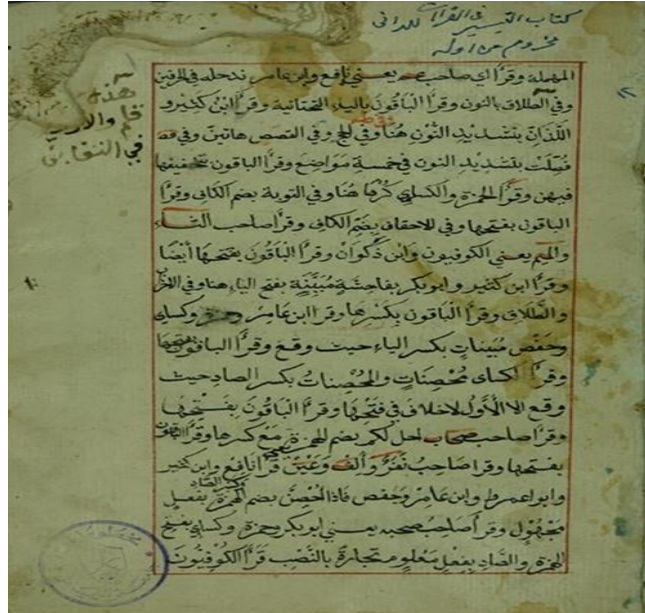 كتاب التيسير في القراءات للداني
مخروم من اوله
المهملة وقرا اي صاحب عم يعني نافع وابن عامر ندخله في الحرفين
وفي الطلاق بالنون وقرا الباقون بالياء التحتانية وقرا ابن كثير و
اللذان بتشديد النون هنا وفي الحج وفي القصص هاتين وفي
فصلت بتشديد النون في خمسة مواضع وقرا الباقون بتخفيفها
فيهن وقرا حمزة والكسائي كرها هنا وفي التوبة بضم الكاف وقرا
الباقون بفتحها وفي الاحقاف بضم الكاف وقرا صاحب الثاء
والميم يعني الكوفيون وابن ذكوان وقرا الباقون بفتحها أيضا
وقرا ابن كثير وابو بكر بفاحشة مبينة بفتح الياء هنا وفي الاحزاب
والطلاق وقرا الباقون بكسرها وقرا ابن عامر وحمزة وكسائي
وحفص مبينات بكسر الياء حيث وقع وقرا الباقون بفتحها
وقرا كسائي محصنات والمحصنات بكسر الصاد حيث
وقع الا الاول لاخلاف في فتحها وقرا الباقون بفتحها
وقرا صاحب صحاب احل لكم بضم الهمزة مع كسرها وقرا الباقون
بفتحها وقرا صاحب نفر قرا نافع وابن كثير
وابو اعمرو وابن عامر وحفص فاذا احصن بضم الهمزة بفعل
مجهول وقرا صاحب صحبه يعني ابو بكر وحمزة وكسائي بفتح
الهمزة والصاد بفعل معلوم تجارة بالنصب قرا الكوفيون
هذه
في النقابة